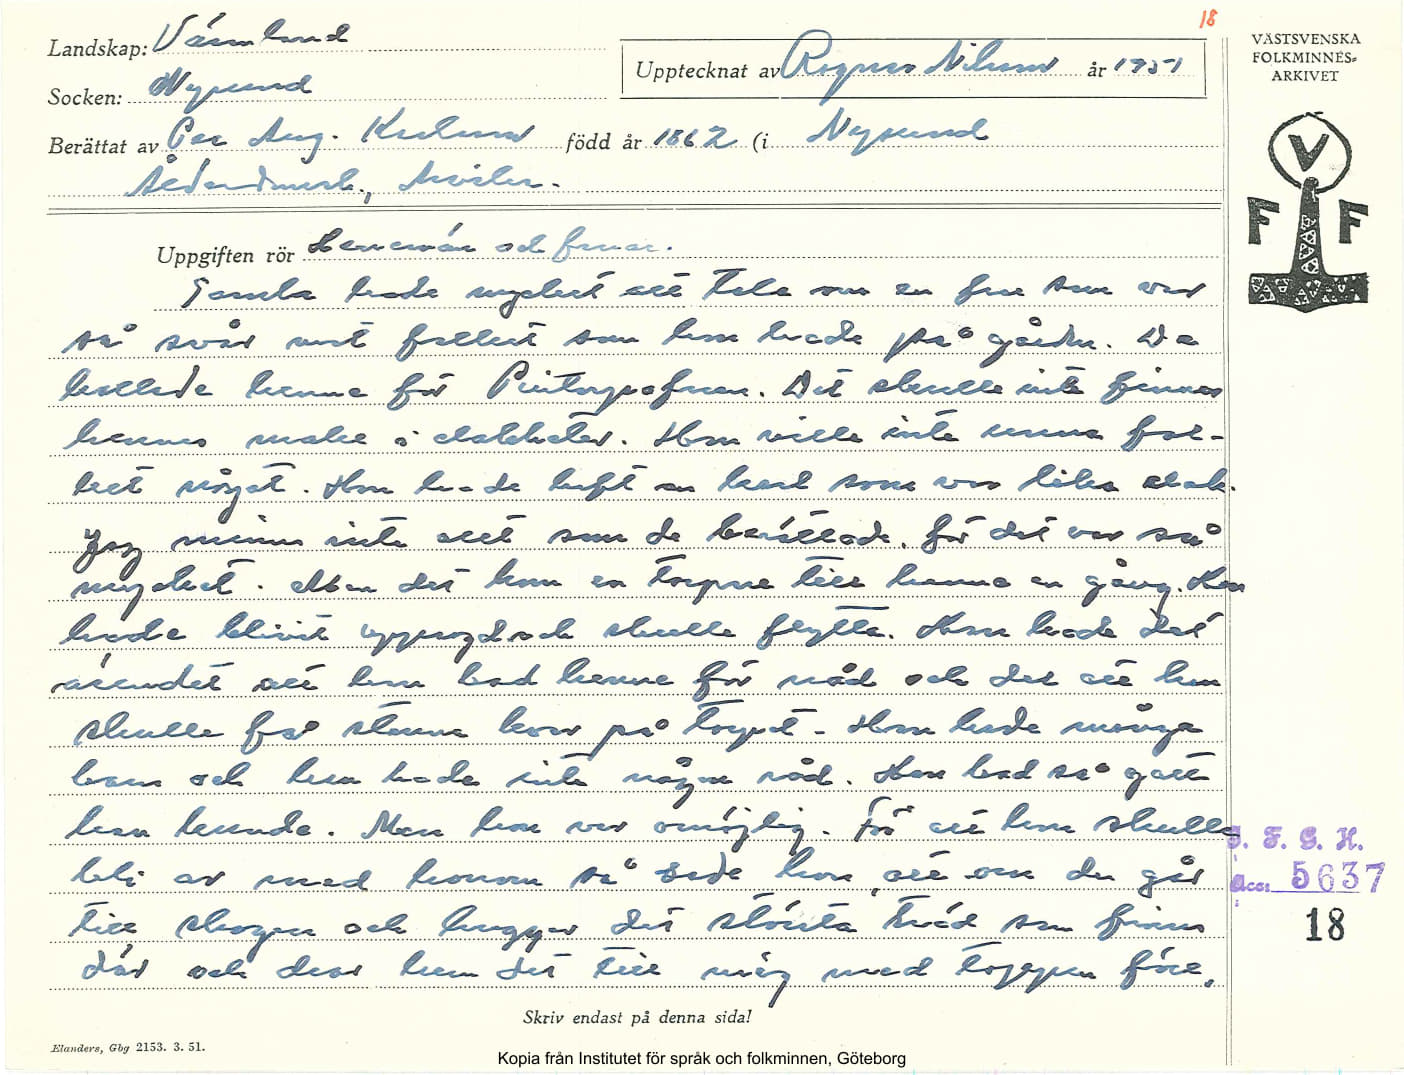 18
Landskap: Värmland
Upptecknat av Ragnar Nilsson år 1951
Socken: Nysund
Berättat av Per Aug. född år 1862 (i Nysund
VÄSTSVENSKA
FOLKMINNES-
ARKIVET
V
F F
Uppgiften rör Herremän och fruar.
Gamla hade mycket att tala om en fru som var
så svår mot folket som hon hade på gården. De
kallade henne för Pintorpafruen. Det skulle inte finnas
hennes make i elakheter. Hon ville inte unna fol-
ket något. Hon hade haft en karl som var lika elak.
Jag minns inte allt som de berättade, för det var så
mycket. Men det kom en torpare till henne en gång. Han
hade blivit uppsagd och skulle flytta. Han hade det
ärendet att han bad henne för nåd och det att han
skulle få stanna kvar på torpet. Han hade många
barn och han hade inte någon råd. Han bad så gott
han kunde. Men hon var omöjlig. För att hon skulle
bli av med honom så sade hon, att om du går
till skogen och hugger det största träd som finns
där och drar hem det till mig med toppen före,
S. F. G. H.
Acc: 5637
18
Skriv endast på denna sida!
Elanders, Gbg 2153. 3. 51.
Kopia från Institutet för språk och folkminnen, Göteborg